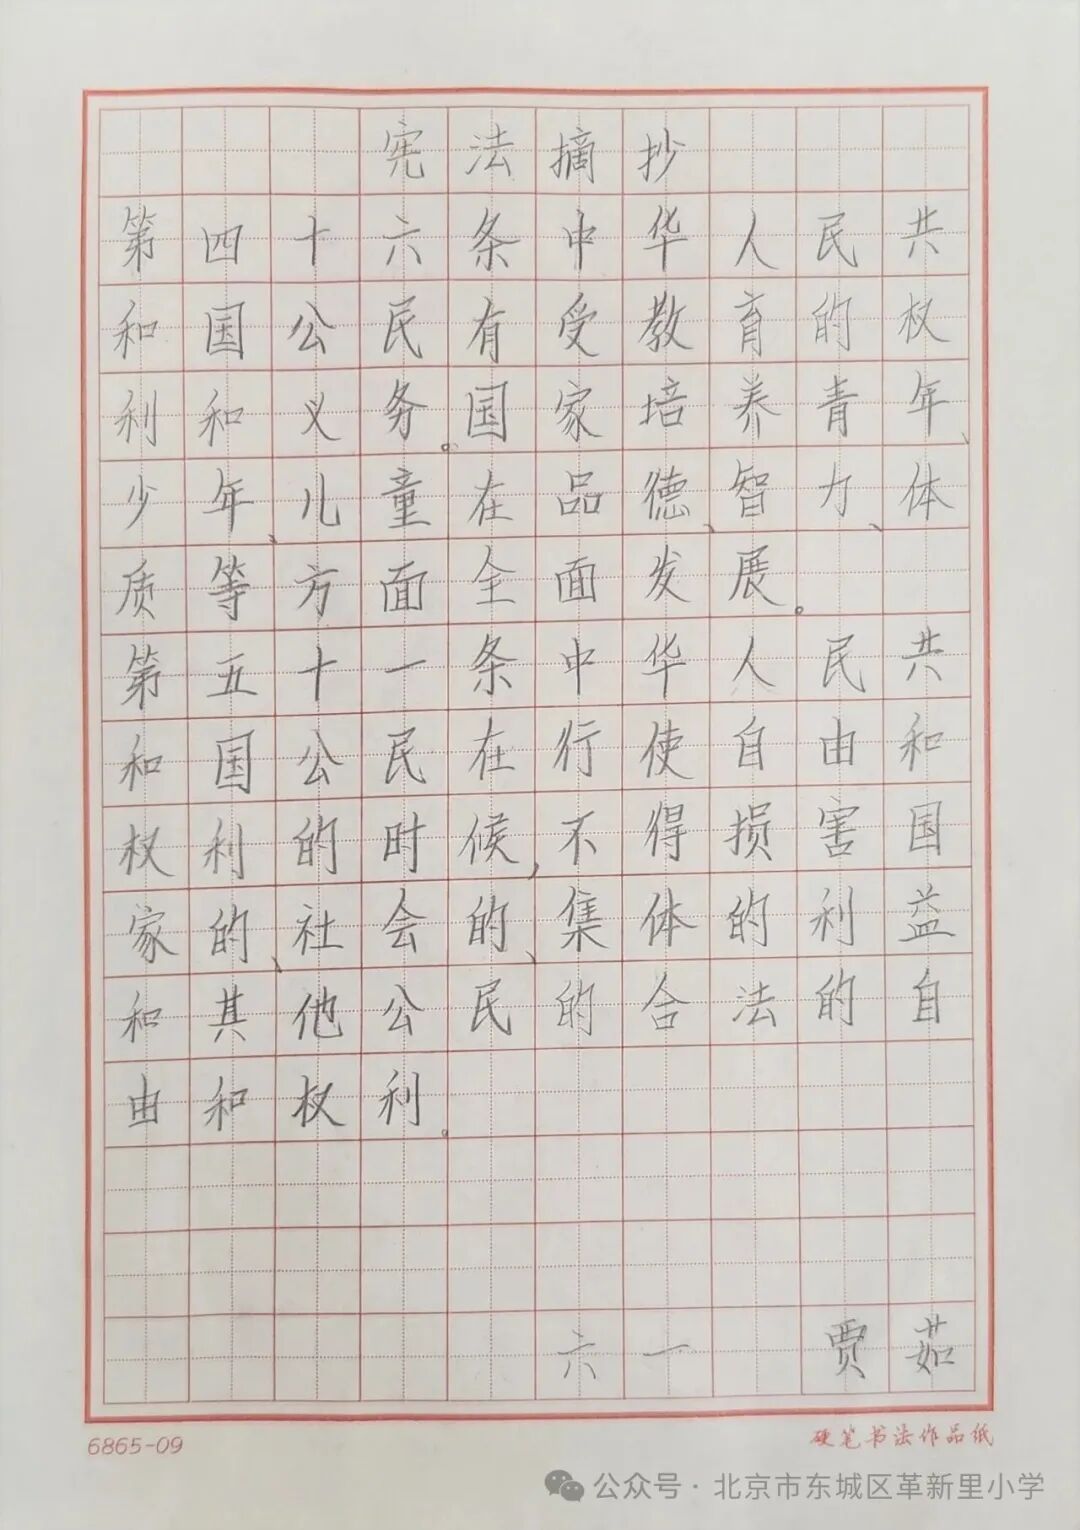 宪法摘抄
第四十六条中华人民共
和国公民有受教育的权
利和义务。国家培养青年、
少年、儿童在品德、智力、体
质等方面全面发展。
第五十一条中华人民共
和国公民在行使自由和
权利的时候,不得损害国
家的、社会的、集体的利益
和其他公民的合法的自
由和权利。
六一 贾茹
6865-09 硬笔书法作品纸
公众号·北京市东城区革新里小学